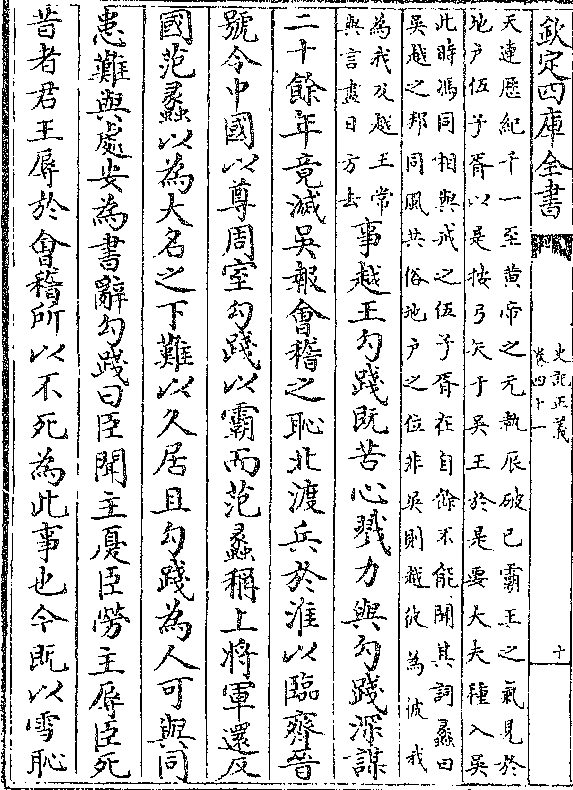 欽定四庫全書
史記正義
卷四十一
十
天運歷紀千一至黄帝之元執辰破巳霸王之氣見於
地户伍子胥以是挾弓矢干吴王於是要大夫種入吴
此時馮同相與戒之伍子胥在自餘不能闗其詞蠡曰
吴越之邦同風共俗地户之位非吴則越彼為彼我
為我及越王常
與言盡日方去
事越王勾踐既苦心戮力與勾踐深謀
二十餘年竟滅吴報會稽之恥北渡兵於淮以臨齊晉
號令中國以尊周室勾踐以霸而范蠡稱上將軍還反
國范蠡以為大名之下難以久居且勾踐為人可與同
患難與處安為書辭勾踐曰臣聞主憂臣勞主辱臣死
昔者君王辱於會稽所以不死為此事也今既以雪恥